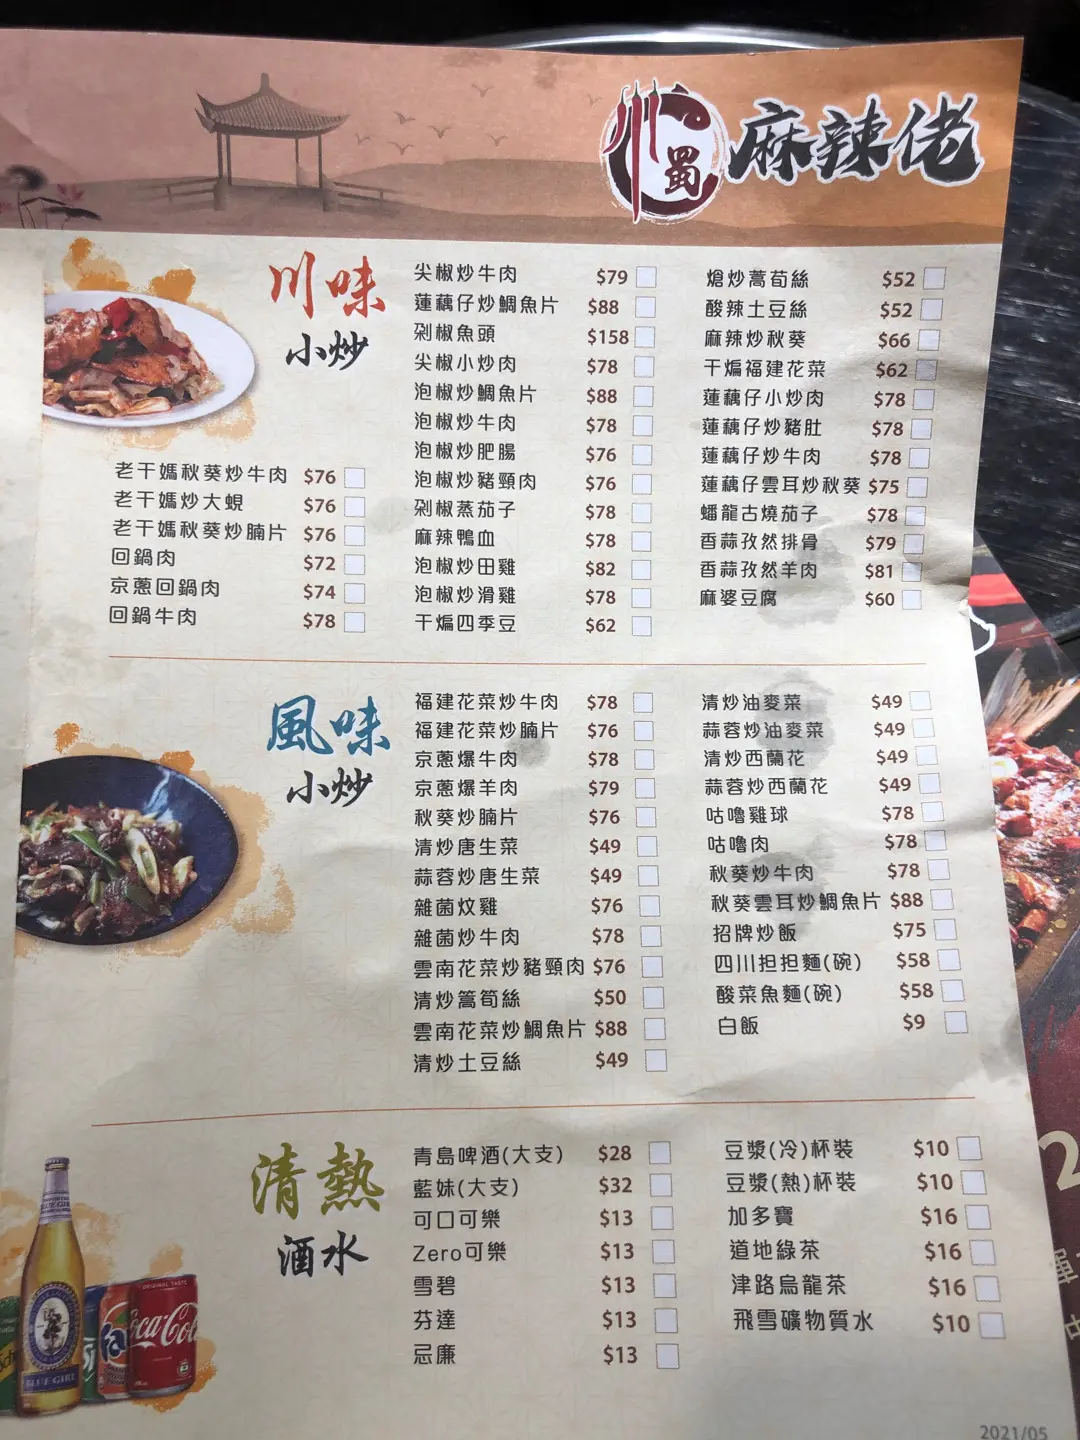 川
蜀
麻辣佬
川味
小炒
老干媽秋葵炒牛肉 $76
老干媽炒大蜆 $76
老干媽秋葵炒腩片 $76
回鍋肉 $72
京蔥回鍋肉 $74
回鍋牛肉 $78
尖椒炒牛肉 $79
蓮藕仔炒鯛魚片 $88
剁椒魚頭 $158
尖椒小炒肉 $78
泡椒炒鯛魚片 $88
泡椒炒牛肉 $78
泡椒炒肥腸 $76
泡椒炒豬頸肉 $76
剁椒蒸茄子 $78
麻辣鴨血 $78
泡椒炒田雞 $82
泡椒炒滑雞 $78
干煸四季豆 $62
熗炒萵荀絲 $52
酸辣土豆絲 $52
麻辣炒秋葵 $66
干煸福建花菜 $62
蓮藕仔小炒肉 $78
蓮藕仔炒豬肚 $78
蓮藕仔炒牛肉 $78
蓮藕仔雲耳炒秋葵 $75
蟠龍古燒茄子 $78
香蒜孜然排骨 $79
香蒜孜然羊肉 $81
麻婆豆腐 $60
風味
小炒
福建花菜炒牛肉 $78
福建花菜炒腩片 $76
京蔥爆牛肉 $78
京蔥爆羊肉 $79
秋葵炒腩片 $76
清炒唐生菜 $49
蒜蓉炒唐生菜 $49
雜菌炆雞 $76
雜菌炒牛肉 $78
雲南花菜炒豬頸肉 $76
清炒篙筍絲 $50
雲南花菜炒鯛魚片 $88
清炒土豆絲 $49
清炒油麥菜 $49
蒜蓉炒油麥菜 $49
清炒西蘭花 $49
蒜蓉炒西蘭花 $49
咕嚕雞球 $78
咕嚕肉 $78
秋葵炒牛肉 $78
秋葵雲耳炒鯛魚片 $88
招牌炒飯 $75
四川担担麵(碗) $58
酸菜魚麵(碗) $58
白飯 $9
清熱
酒水
青島啤酒(大支) $28
藍妹(大支) $32
可口可樂 $13
Zero可樂 $13
雪碧 $13
芬達 $13
忌廉 $13
豆漿(冷)杯裝 $10
豆漿(熱)杯裝 $10
加多寶 $16
道地綠茶 $16
津路烏龍茶 $16
飛雪礦物質水 $10
BLUE GIRL
ORIGINAL TASTE
Coca-Cola
2021/05